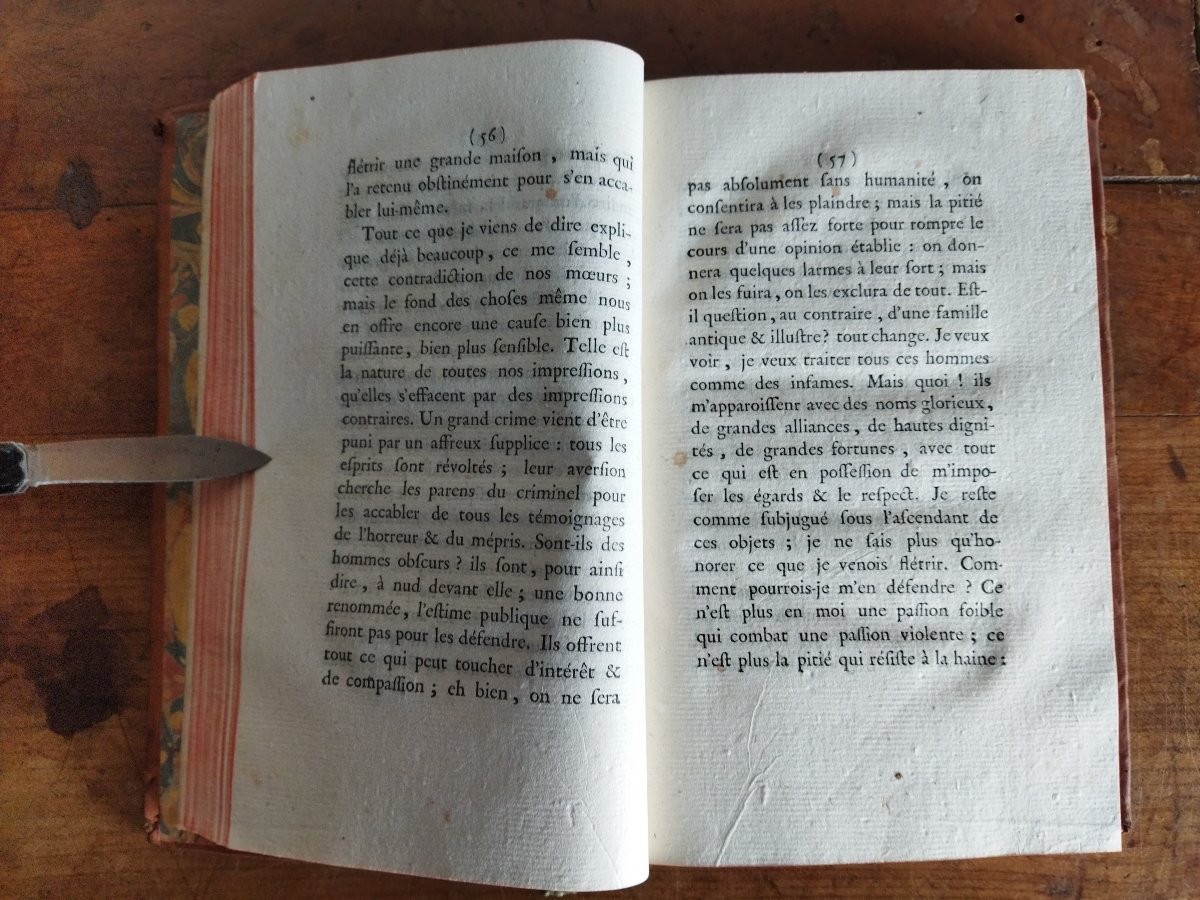 (56)
flétrir une grande maiſon, mais qui
l'a retenu obſtinément pour s'en acca-
bler lui-même.
Tout ce que je viens de dire expli-
que déjà beaucoup, ce me ſemble,
cette contradiction de nos mœurs ;
mais le fond des choſes même nous
en offre encore une cauſe bien plus
puiſſante, bien plus ſenſible. Telle eſt
la nature de toutes nos impreſſions,
qu'elles s'effacent par des impreſſions
contraires. Un grand crime vient d'être
puni par un affreux ſupplice : tous les
eſprits ſont révoltés ; leur averſion
cherche les parens du criminel pour
les accabler de tous les témoignages
de l'horreur & du mépris. Sont-ils des
hommes obſcurs ? ils ſont, pour ainſi
dire, à nud devant elle ; une bonne
renommée, l'eſtime publique ne ſuf-
firont pas pour les défendre. Ils offrent
tout ce qui peut toucher d'intérêt &
de compaſſion ; eh bien, on ne ſera
(57)
pas abſolument ſans humanité, on
conſentira à les plaindre ; mais la pitié
ne ſera pas aſſez forte pour rompre le
cours d'une opinion établie : on don-
nera quelques larmes à leur ſort ; mais
on les fuira, on les exclura de tout. Eſt-
il queſtion, au contraire, d'une famille
antique & illuſtre? tout change. Je veux
voir, je veux traiter tous ces hommes
comme des infames. Mais quoi ! ils
m'apparoiſſent avec des noms glorieux,
de grandes alliances, de hautes digni-
tés, de grandes fortunes, avec tout
ce qui eſt en poſſeſſion de m'impo-
ſer les égards & le reſpect. Je reſte
comme ſubjugué ſous l'aſcendant de
ces objets ; je ne ſais plus qu'ho-
norer ce que je venois flétrir. Com-
ment pourrois-je m'en défendre ? Ce
n'eſt plus en moi une paſſion foible
qui combat une paſſion violente ; ce
n'eſt plus la pitié qui réſiſte à la haine :